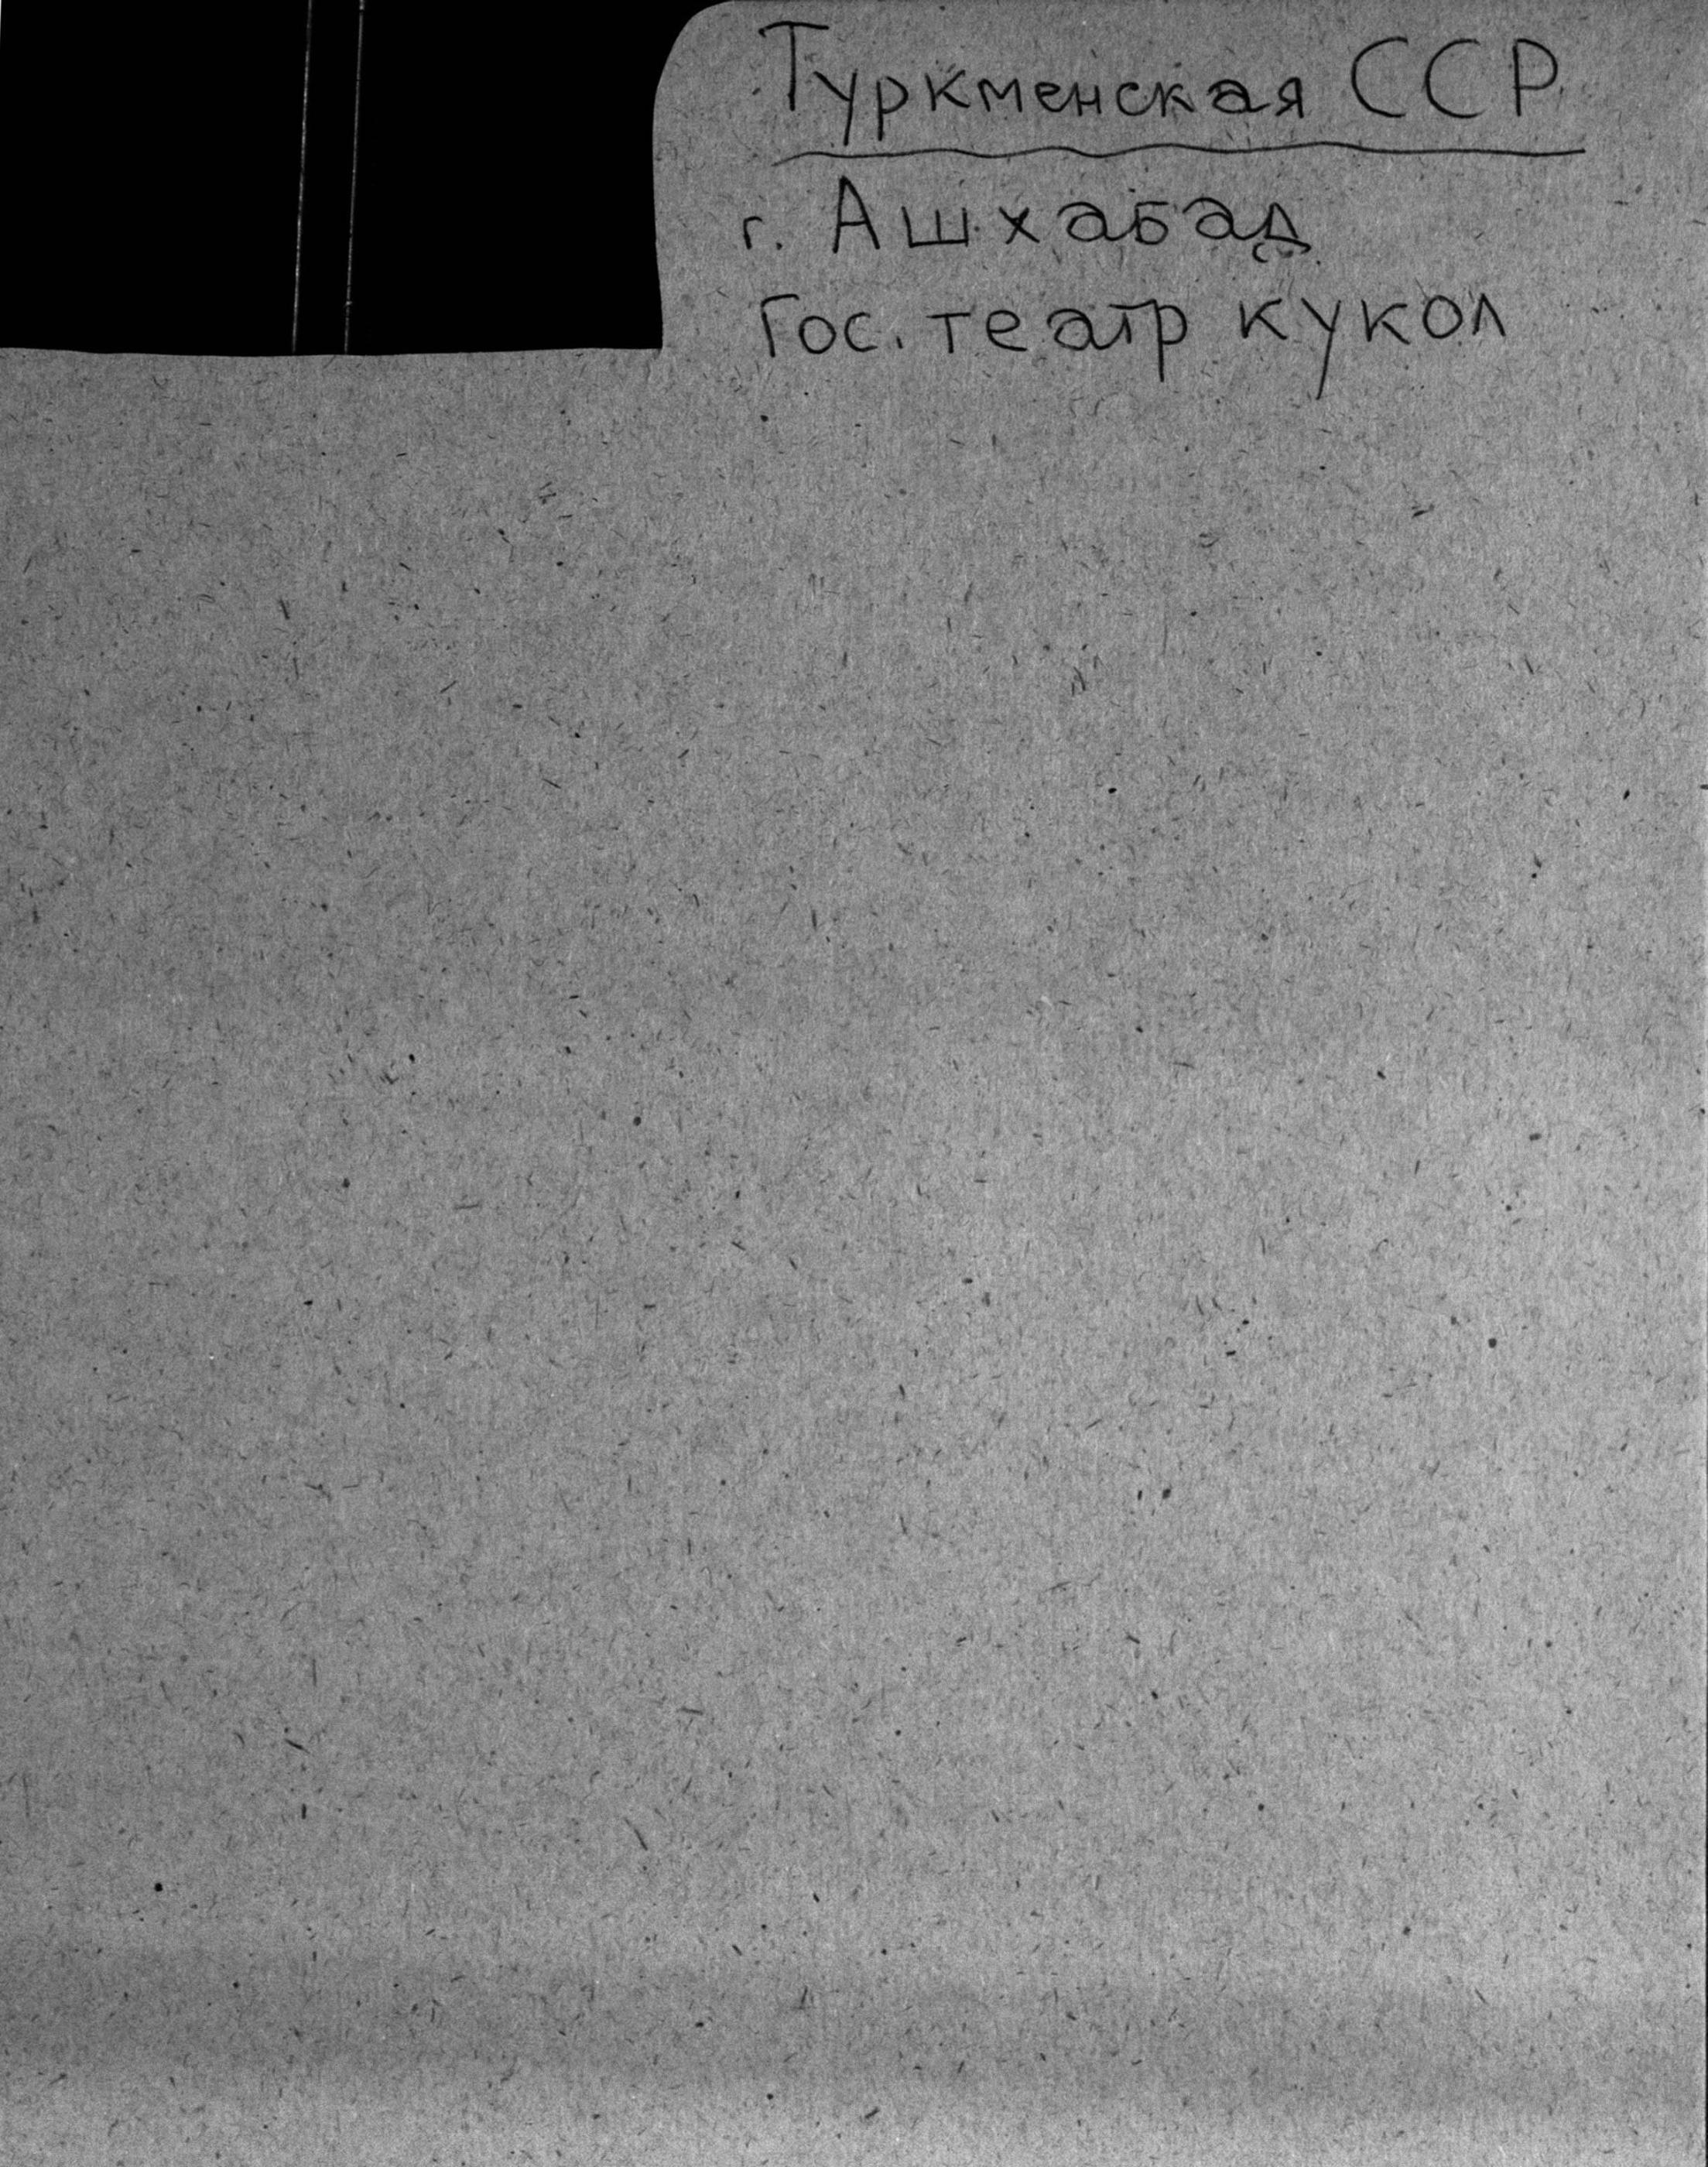 Туркменская ССР
г. Ашхабад
Гос. театр кукол